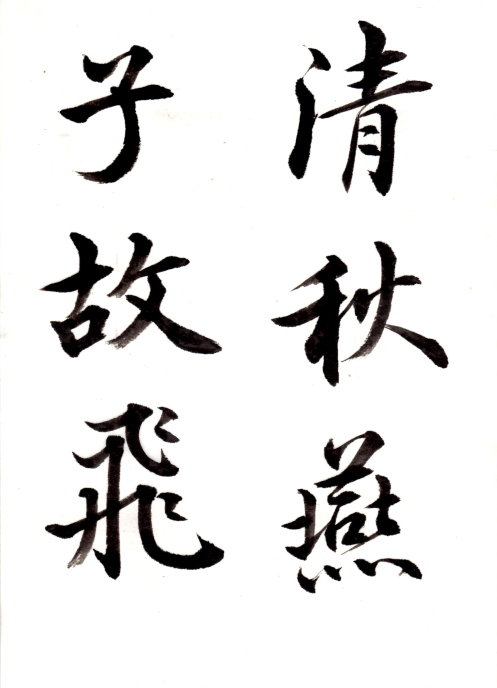 清秋燕
子故飛